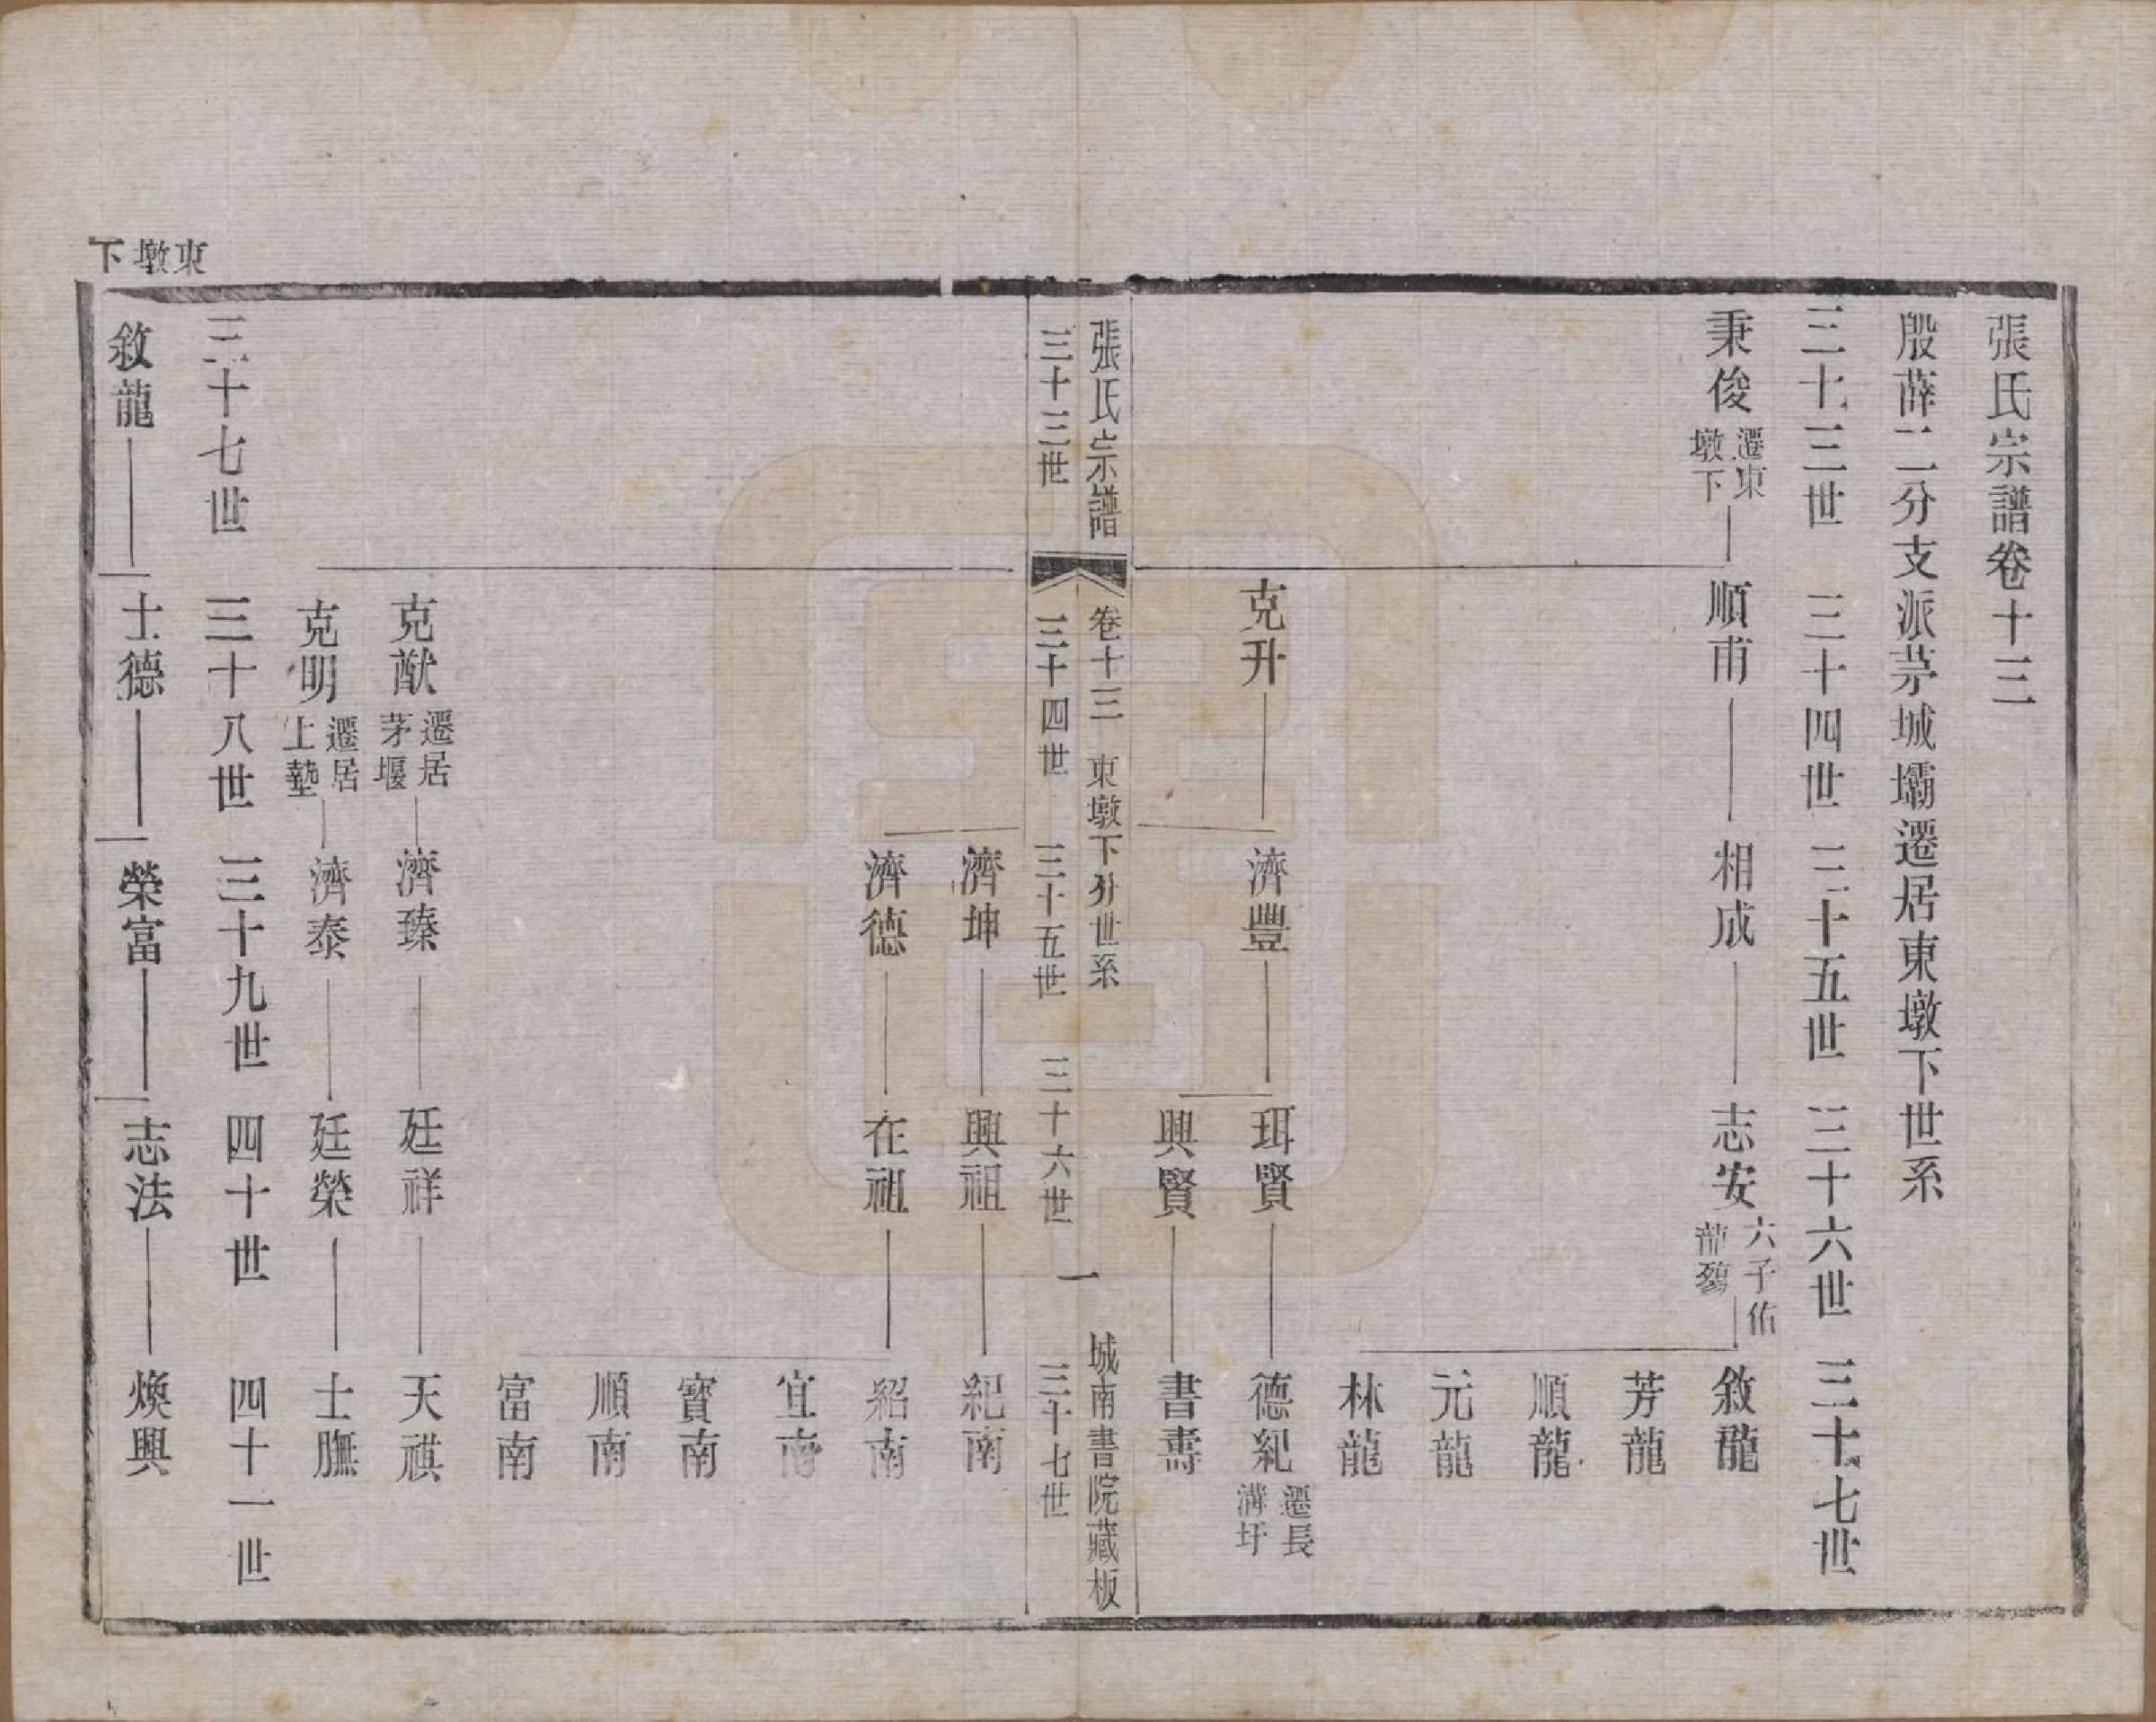 張氏宗譜卷十三
殷薛二分支派茅城壩遷居東墩下世系
三十三世 三十四世 三十五世 三十六世 三十七世
秉俊 遷東墩下 順甫 相成 志安 六子佑龍殤 敘龍
芳龍
順龍
元龍
林龍
克升 濟豐 珥賢 德紀 遷長溝圩
興賢 書壽
張氏宗譜 卷十三 東墩下分世系 一 城南書院藏板
三十三世 三十四世 三十五世 三十六世 三十七世
濟坤 興祖 紀南
濟德 在祖 紹南
宜南
寶南
順南
富南
克猷 遷居茅堰 濟臻 廷祥 天祺
克明 遷居上墊 濟泰 廷榮 士膴
三十七世 三十八世 三十九世 四十世 四十一世
敘龍 士德 榮富 志法 煥興
東墩下